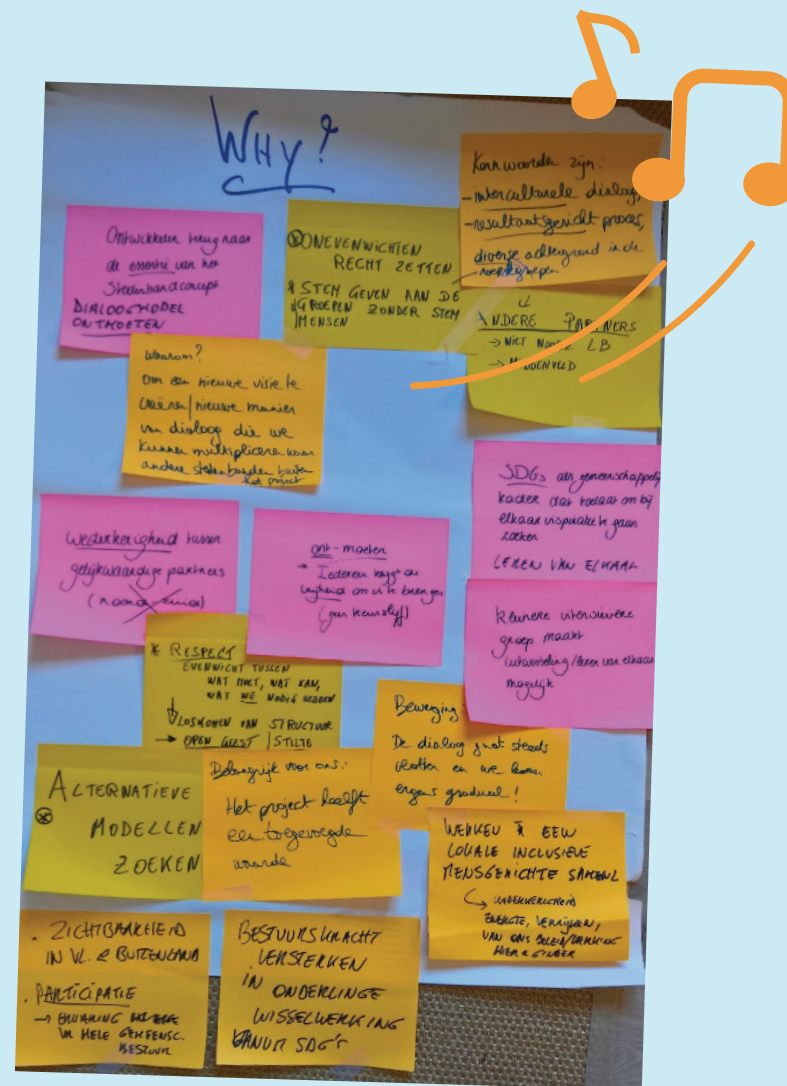 WHY?
Kernwoorden zijn:
- interculturele dialoog,
- resultaatsgericht proces,
diverse achtergrond in de
werkgroepen
Ontwikkelen terug naar
de essentie van het
Stedenbandconcept
DIALOOGMODEL
ONTMOETEN
ONEVENWICHTEN
RECHT ZETTEN
* STEM GEVEN AAN DE
GROEPEN ZONDER STEM
MENSEN
ANDERE PARTNERS
→ NIET LB
→ MIDDENVELD
Waarom?
Om een nieuwe visie te
creëren/nieuwe manier
van dialoog die we
kunnen multipliceren naar
andere stedenbanden buiten
het project
SDGs als gemeenschappelijk
kader dat toelaat om bij
elkaar inspiratie te gaan
zoeken
LEREN VAN ELKAAR
Wederkerigheid tussen
gelijkwaardige partners
(noord zuid)
ont-moeten
→ Iedereen krijgt de
vrijheid om in te brengen
(geen keurslijf)
Kleinere intensievere
groep maakt
uitwisseling/leren van elkaar
mogelijk
* RESPECT
EVENWICHT TUSSEN
WAT MOET, WAT KAN,
WAT WE NODIG HEBBEN
LOSKOMEN VAN STRUCTUUR
→ OPEN GEEST / STILTE
Beweging:
De dialoog gaat steeds
vlotter en we komen
ergens gradueel!
ALTERNATIEVE
MODELLEN
ZOEKEN
Belangrijk voor ons:
Het project heeft
een toegevoegde
waarde
WERKEN EEN
LOKALE INCLUSIEVE
MENSGERICHTE SAMENL
WEDERKERIGHEID
ENERGIE, VERRIJKEN,
VAN ONS BELEID/WERKING
HIER & GINDER
. ZICHTBAARHEID
IN VL. & BUITENLAND
. PARTICIPATIE
→ ERVARING
IN HELE GEMEENSCH.
BESTUUR
BESTUURSKRACHT
VERSTERKEN
IN ONDERLINGE
WISSELWERKING
VANUIT SDG'S